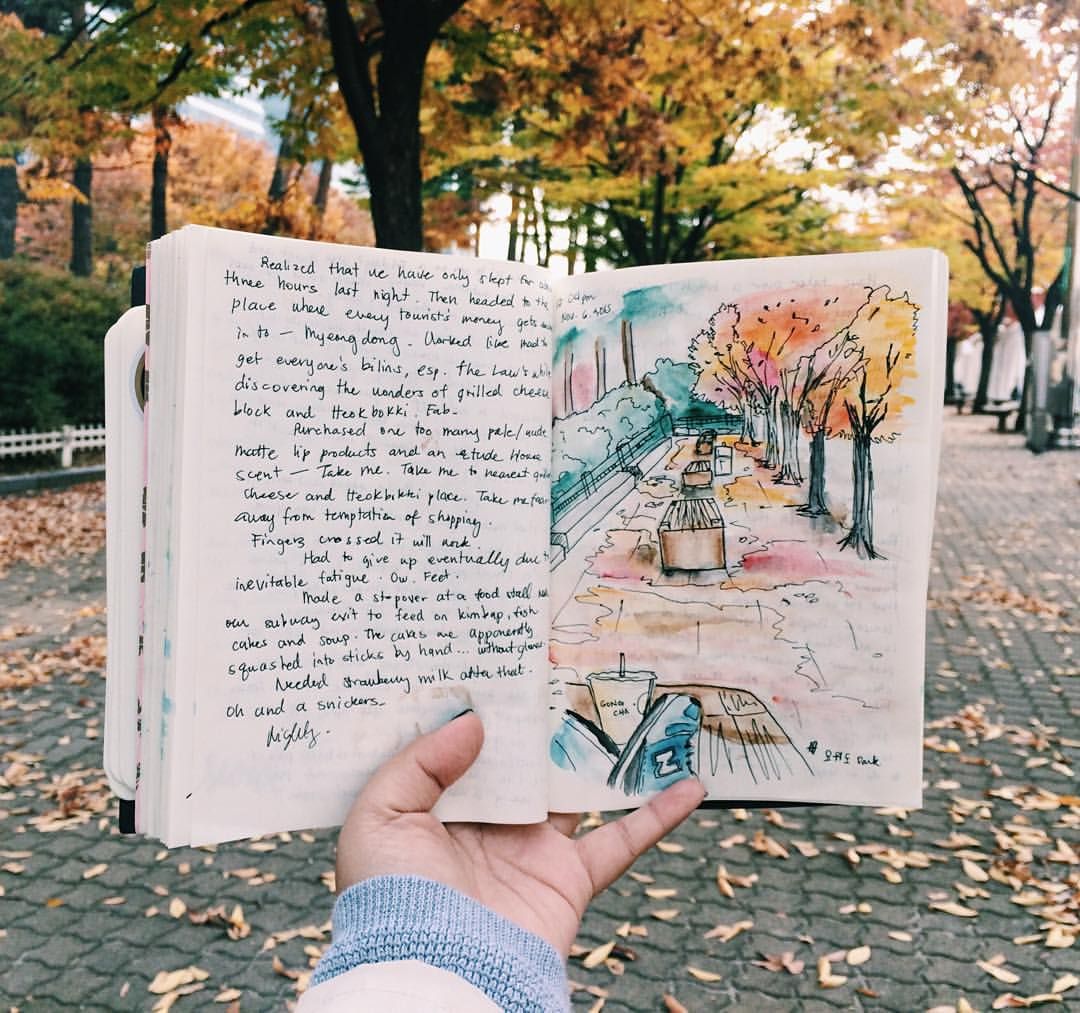 Realized that we have only slept for
three hours last night. Then headed to the
place where every tourist's money gets
in to — Myeongdong. Worked like mad to
get everyone's bilins, esp. the Law's while
discovering the wonders of grilled cheese
block and tteokbokki. Fab.
Purchased one too many pale/nude
matte lip products and an etude House
scent — Take me. Take me to nearest
cheese and tteokbikki place. Take me far
away from temptation of shopping.
Fingers crossed it will work
Had to give up eventually due to
inevitable fatigue. Ow. Feet.
Made a stopover at a food stall
our subway exit to feed on kimbap, fish
cakes and soup. The cakes are apparently
squashed into sticks by hand... without gloves.
Needed strawberry milk after that.
Oh and a snickers.
Nov. 6. 2015
GONG
CHA
N
Park